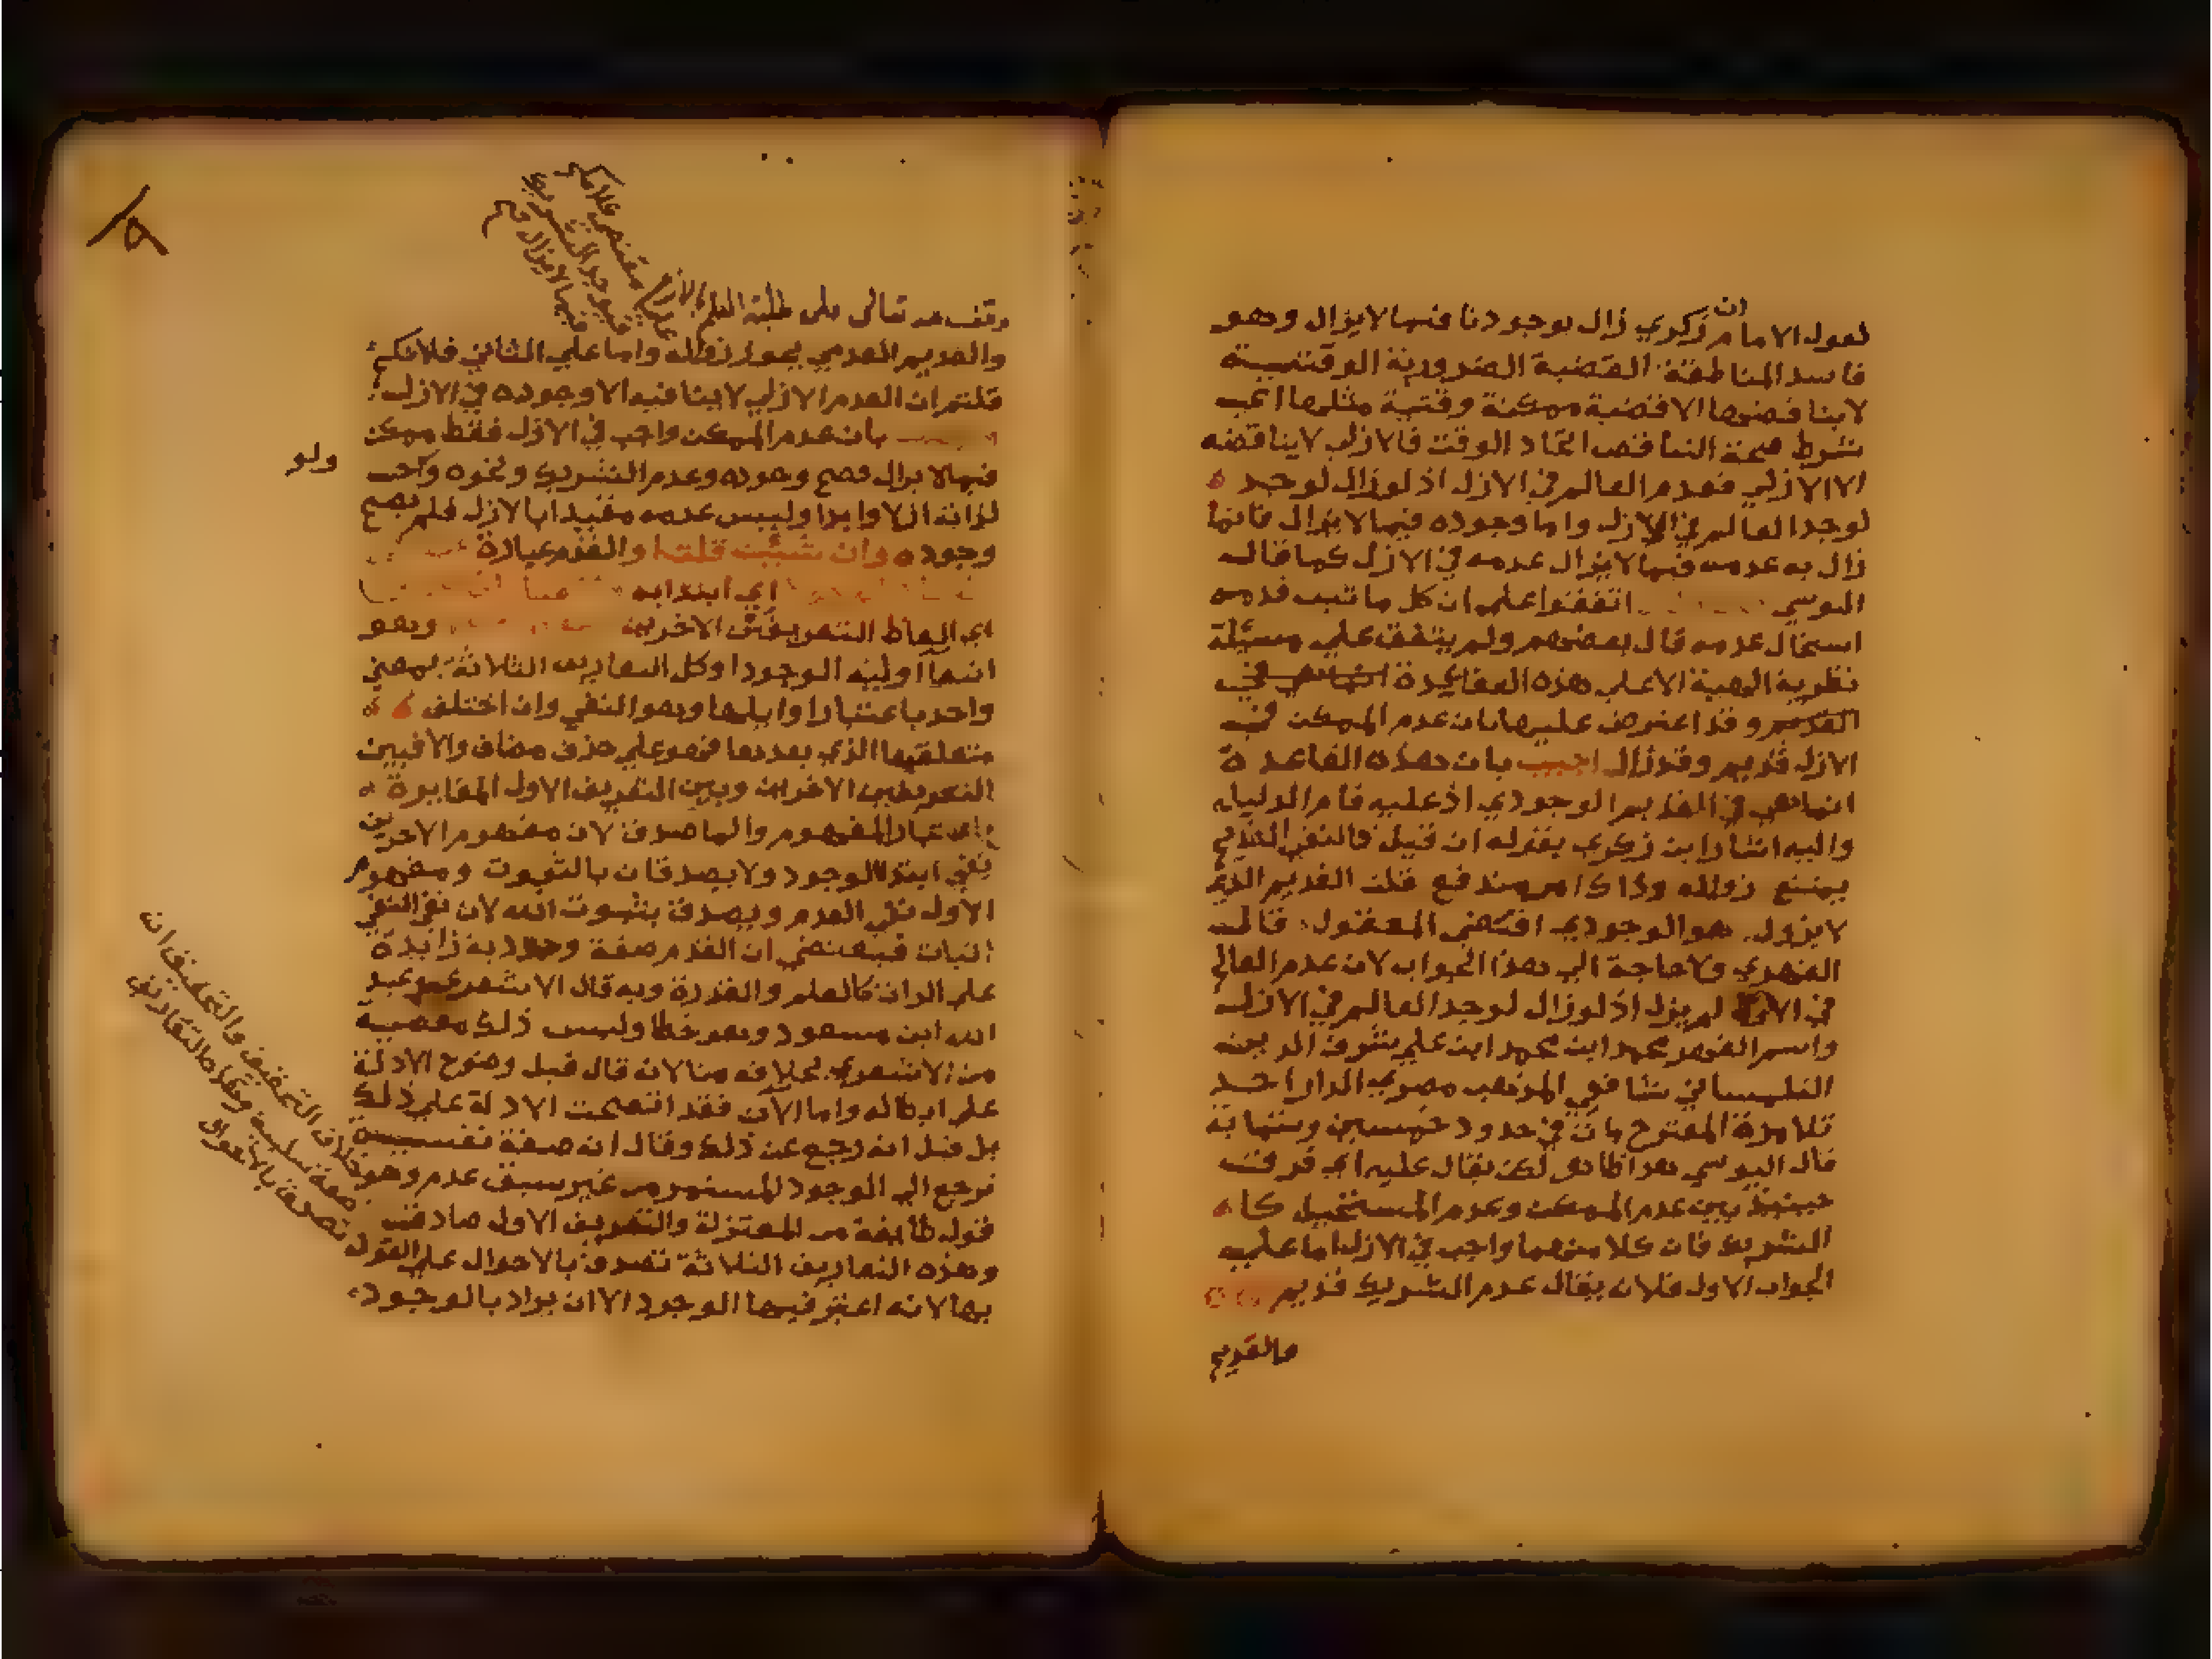 لقول الامام ان زكري زال بوجودنا فيما لا يزال وهو
فاسد المناطقة القضية الضرورية الوقتية
لا يناقضها الا قضية ممكنة وقتية مثلها اعب
شرط صحة التناقض اتحاد الوقت فالازلي لا يناقضه
الا الازلي فعدم العالم في الازل اذ لو زال لوجد
لوجد العالم في الازل واما وجوده فيما لا يزال فانما
زال به عدمه فيما لا يزال عدمه في الازل كما قال
اليوسي اتفقوا علي ان كل ما ثبت قدمه
استحال عدمه قال بعضهم ولم يتفق علي مسئلة
نظرية الهية الا علي هذه العقايدة انما هي في
القديم وقد اعترض عليها بان عدم الممكن في
الازل قديم وقد زال اجيب بان هذه القاعدة
انما هي في القديم الوجودي اذ عليه قام الدليل
واليه اشار ابن زكري بقوله ان قيل فالنفي القديم
يمتنع زواله وذا كامر مندفع قلت القديم الذي
لا يزول هو الوجودي اقتضي المعقول قالت
الفهري ولا حاجة الي هذا الجواب لان عدم العالم
في الازل لم يزل اذ لو زال لوجد العالم في الازل
واسم الفهري محمد ابن محمد ابن علي شرف الدين
التلمساني شافعي المذهب مصري الدار احد
تلامذة المقترح مات في حدود خمسين وستماية
قال اليوسي هذا ظاهر لكن يقال عليه اي فرق
حينئذ بين عدم الممكن وعدم المستحيل كا
الشريك فان كلا منهما واجب في الازل اما علي
الجواب الاول فلان يقال عدم الشريك قديم
والقديم
وقف لله تعالى على طلبة العلم بالازهر
والقديم العدمي يجوز زواله واما علي الثاني فلانكم
قلتم ان العدم الازلي لا ينافيه الا وجوده في الازل
بان عدم الممكن واجب في الازل فقط ممكن
فيما لا يزال فصح وجوده وعدم الشريك ونحوه واجب
لذاته ازلا وابدا وليس عدمه مقيدا بالازل فلم يصح
وجوده وان شئت قلت والقدم عبارة
اي ابتدايه
اي الفاظ التعريفين الاخرين وهو
انتفا اولية الوجود وكل التعاريف الثلاثة بمعني
واحد باعتبار اوايلها وهو النفي وان اختلف
متعلقها الذي بعدها فهو علي حذف مضاف والا فبين
التعريفين الاخرين وبين التعريف الاول المغايرة
باعتبار المفهوم والماصدق لان مفهوم الاخرين
نفي ابتدا الوجود ولا يصدقان بالثبوت ومفهوم
الاول نفي العدم ويصدق بثبوت الله لان نفي النفي
اثبات فيقتضي ان القدم صفة وجودية زايدة
علي الذات كالعلم والقدرة وبه قال الاشعري وعبد
الله ابن مسعود وهو خطا وليس ذلك معصية
من الاشعري بخلافه منا لان قال قبل وضوح الادلة
علي ابطاله واما الان فقد اتضحت الادلة علي ذلك
بل قيل انه رجع عن ذلك وقال انه صفة نفسية
ترجع الي الوجود المستمر من غير سبق عدم وهو
قول طايفة من المعتزلة والتعريف الاول صادق
وهذه التعاريف الثلاثة تصدق بالاحوال علي القول
بها لانه اعتبر فيها الوجود الا ان يراد بالوجود
ولو
خلاف التحقيق والتحقيق ان
صفة سلبية وهذه التعاريف
تصدق بالاحوال